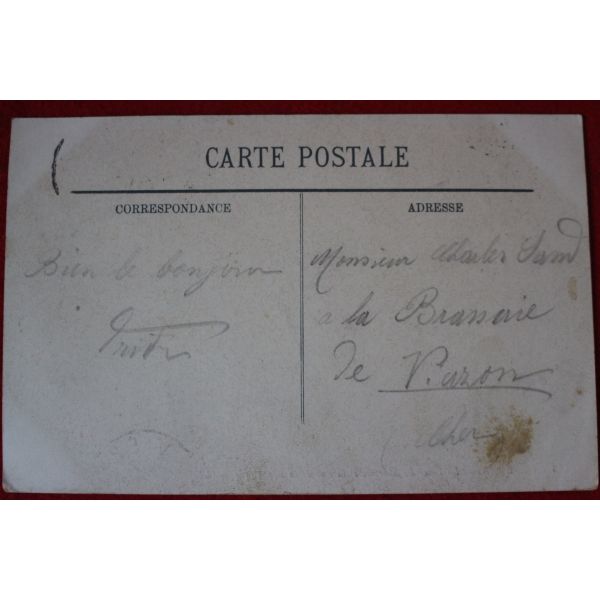 CARTE POSTALE
CORRESPONDANCE
ADRESSE
Bien le bonjour
Monsieur Charles Sand
a la Brasserie
de Vierzon
Cher